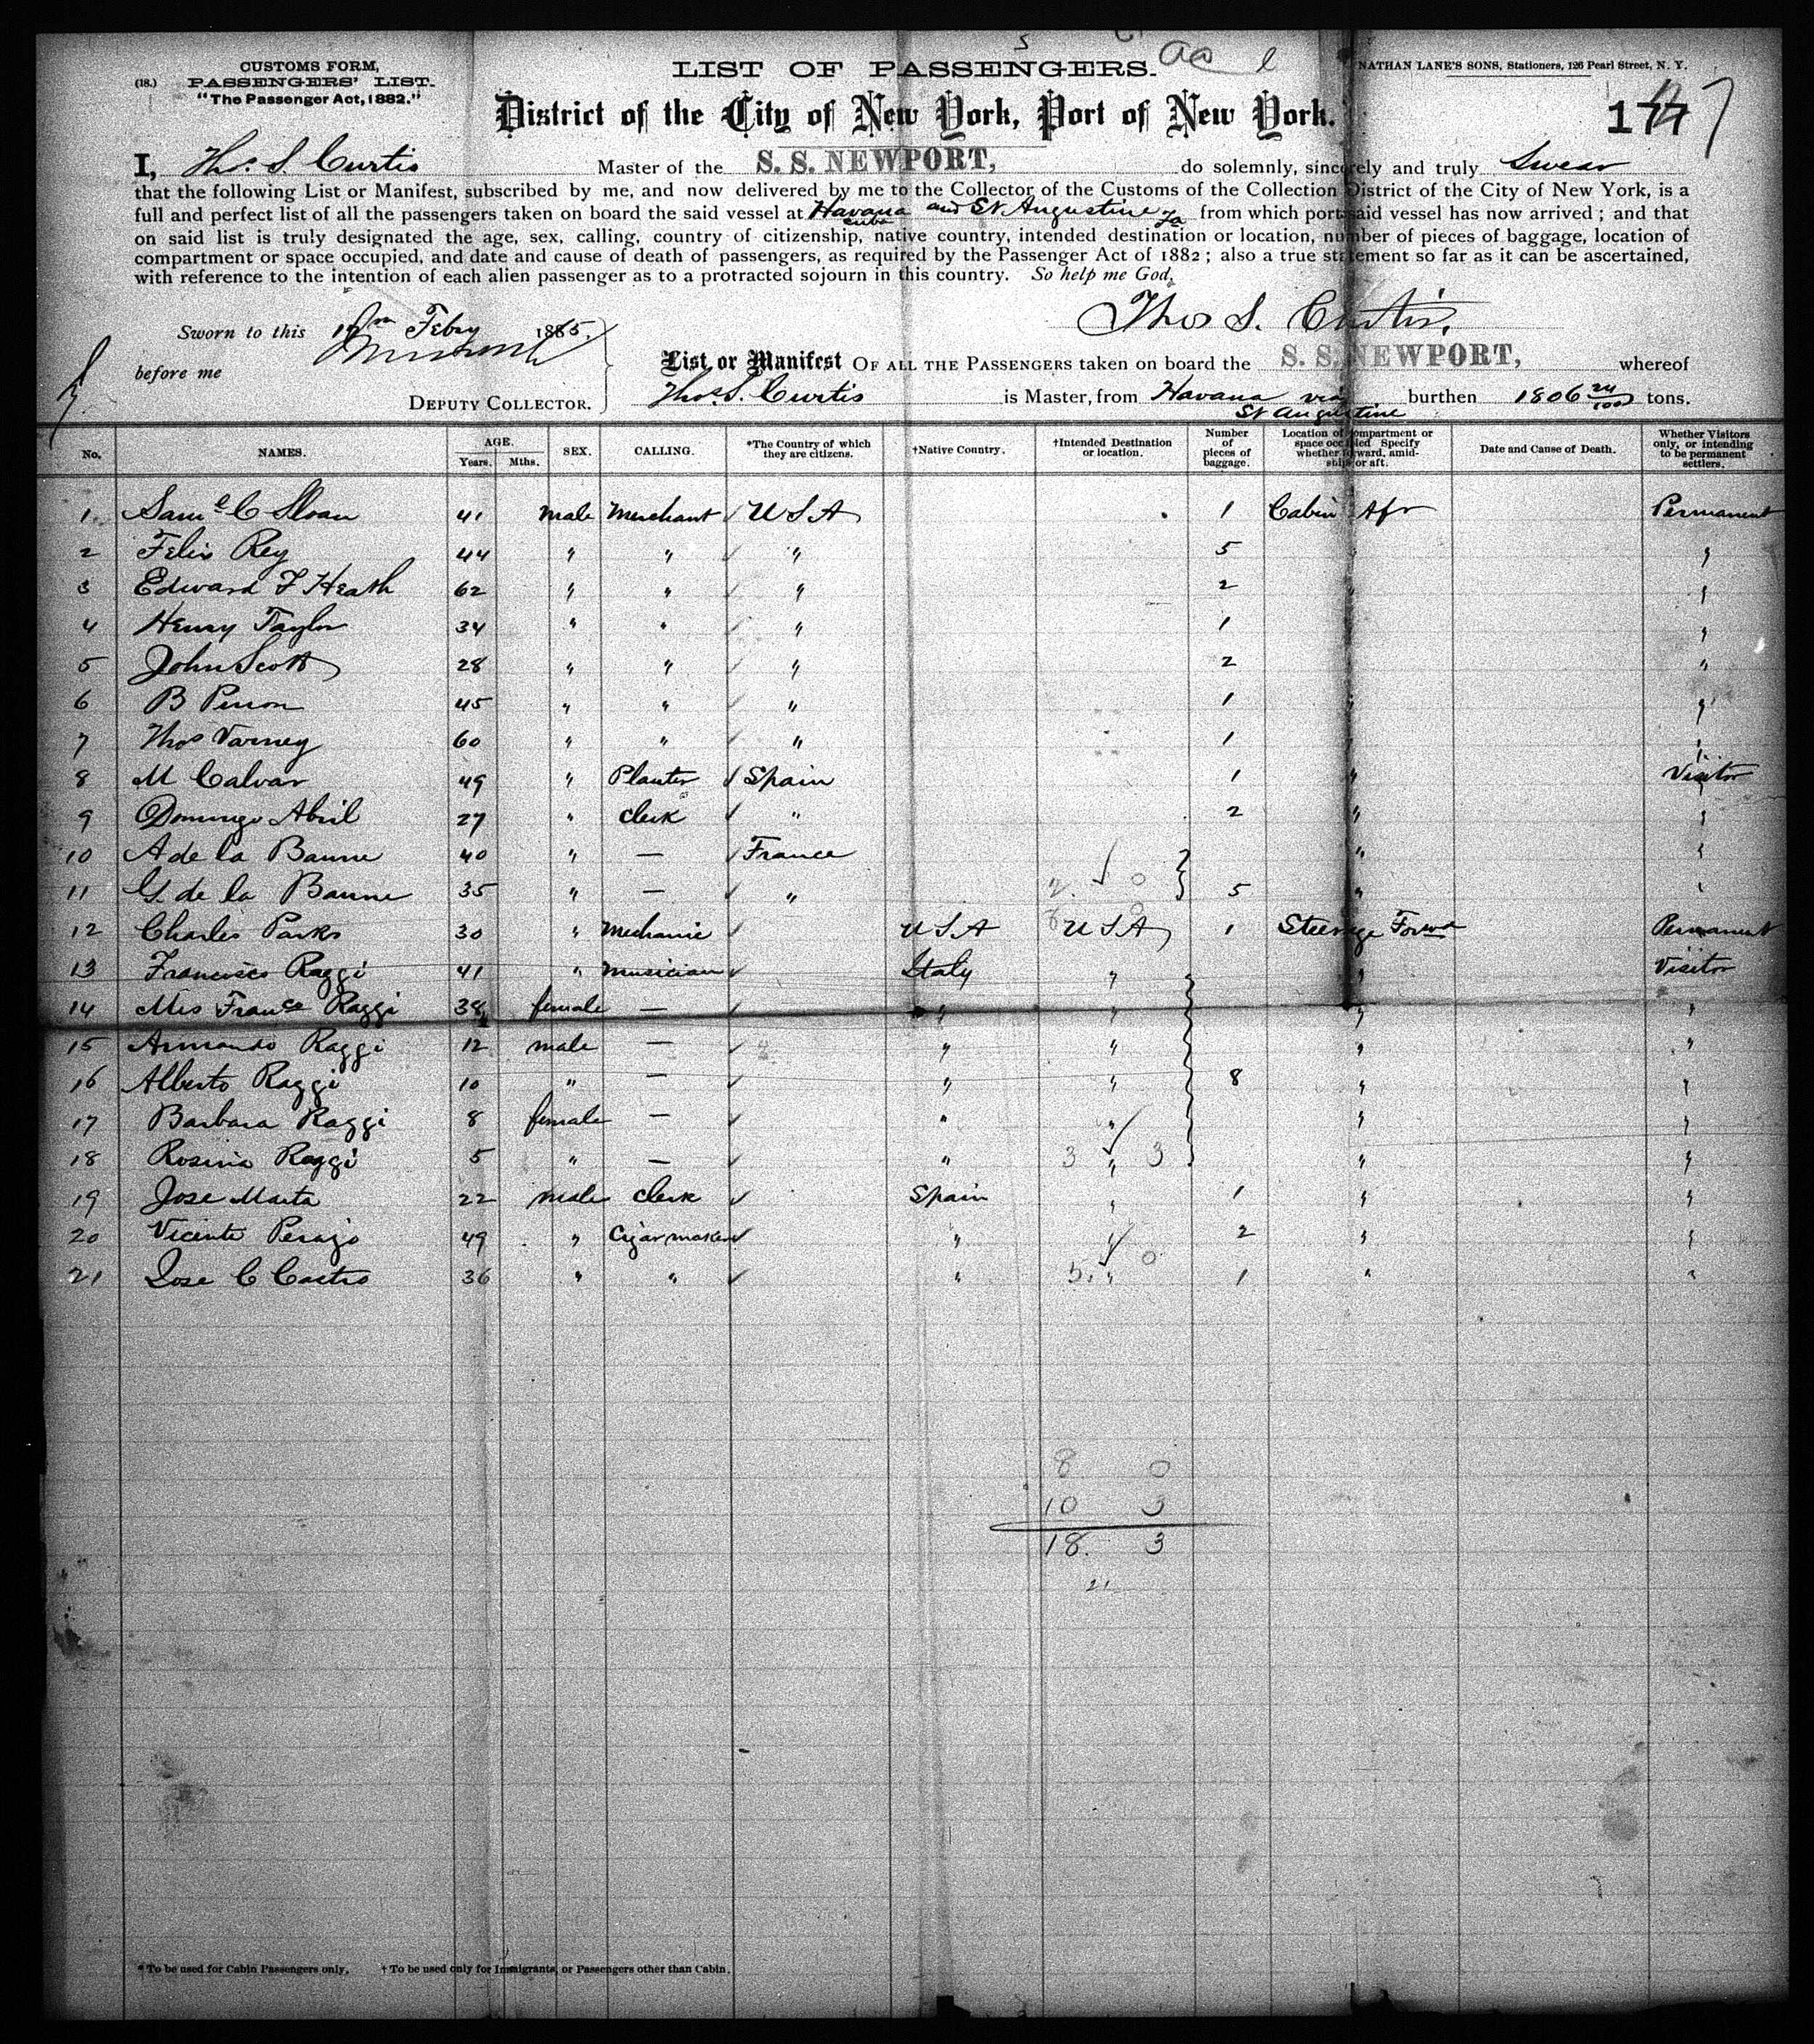 CUSTOMS FORM,
(18.) PASSENGERS' LIST.
"The Passenger Act, 1882."
LIST OF PASSENGERS.
NATHAN LANE'S SONS, Stationers, 126 Pearl Street, N. Y.
District of the City of New York, Port of New York.
177
I, Thos. S. Curtis Master of the S. S. NEWPORT, do solemnly, sincerely and truly Swear
that the following List or Manifest, subscribed by me, and now delivered by me to the Collector of the Customs of the Collection District of the City of New York, is a
full and perfect list of all the passengers taken on board the said vessel at Havana Cuba and St Augustine Fa from which port said vessel has now arrived; and that
on said list is truly designated the age, sex, calling, country of citizenship, native country, intended destination or location, number of pieces of baggage, location of
compartment or space occupied, and date and cause of death of passengers, as required by the Passenger Act of 1882; also a true statement so far as it can be ascertained,
with reference to the intention of each alien passenger as to a protracted sojourn in this country. So help me God,
Thos S. Curtis.
Sworn to this Febry 1885.
before me
DEPUTY COLLECTOR.
List or Manifest OF ALL THE PASSENGERS taken on board the S. S. NEWPORT, whereof
Thos. S. Curtis is Master, from Havana via St Augustine burthen 1806 24/100 tons.
No. NAMES. AGE. Years. Mths. SEX. CALLING. *The Country of which they are citizens. †Native Country. †Intended Destination or location. Number of pieces of baggage. Location of compartment or space occupied Specify whether forward, amidships or aft. Date and Cause of Death. Whether Visitors only, or intending to be permanent settlers.
1 Saml C Sloan 41 male Merchant ✓ USA 1 Cabin Aft Permanent
2 Felix Rey 44 " " ✓ " 5 " "
3 Edward F Heath 62 " " ✓ " 2 " "
4 Henry Taylor 34 " " ✓ " 1 " "
5 John Scott 28 " " ✓ " 2 " "
6 B 45 " " ✓ " 1 " "
7 Thos Varney 60 " " ✓ " 1 " "
8 M Calvar 49 " Planter ✓ Spain 1 " Visitor
9 Domingo Abril 27 " Clerk ✓ " 2 " "
10 A de la Baume 40 " — ✓ France " "
11 G. de la Baume 35 " — ✓ " 2. ✓ 0 5 " "
12 Charles Parks 30 " Mechanic ✓ USA USA 1 Steerage Forwd Permanent
13 Francisco Raggi 41 " Musician ✓ Italy " " Visitor
14 Mrs Franca Raggi 38 female — ✓ " " " "
15 Armando Raggi 12 male — ✓ " " " "
16 Alberto Raggi 10 " — ✓ " " 8 " "
17 Barbara Raggi 8 female — ✓ " " " "
18 Rosina Raggi 5 " — ✓ " 3 ✓ " 3 " "
19 Jose Marta 22 male Clerk ✓ Spain " 1 " "
20 Vicente Perajo 49 " Cigar maker ✓ " " 2 " "
21 Jose C Castro 36 " " ✓ " 5. ✓ " 0 1 " "
8 0
10 3
18. 3
21
* To be used for Cabin Passengers only. † To be used only for Immigrants, or Passengers other than Cabin.